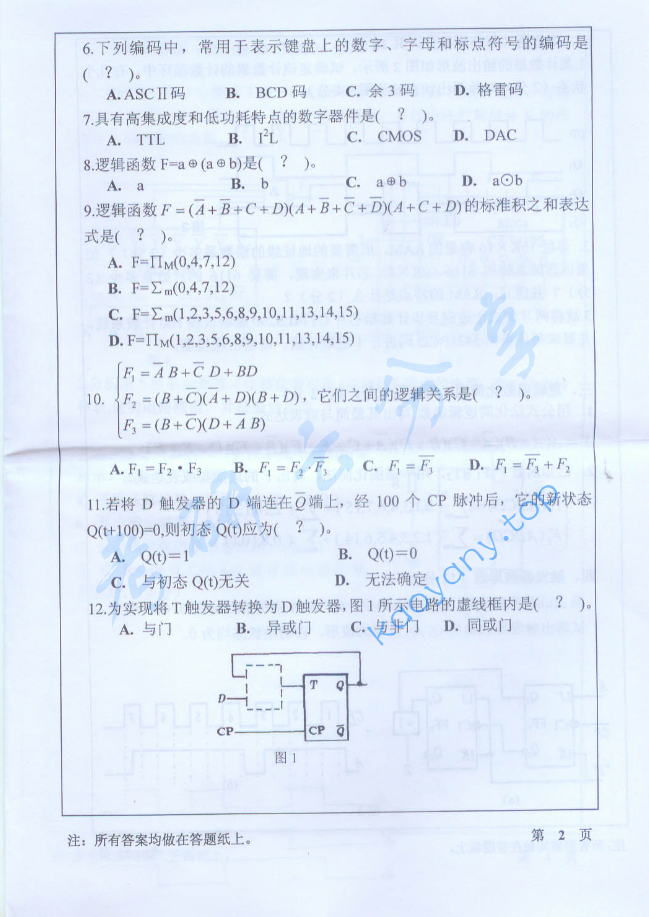 6.下列编码中，常用于表示键盘上的数字、字母和标点符号的编码是
( ? )。
A. ASCⅡ码 B. BCD 码 C. 余 3 码 D. 格雷码
7.具有高集成度和低功耗特点的数字器件是( ? )。
A. TTL B. I²L C. CMOS D. DAC
8.逻辑函数 F=a⊕(a⊕b)是( ? )。
A. a B. b C. a⊕b D. a⊙b
9.逻辑函数 F = (A̅+B̅+C+D)(A+B̅+C̅+D̅)(A+C+D)的标准积之和表达
式是( ? )。
A. F=∏M(0,4,7,12)
B. F=∑m(0,4,7,12)
C. F=∑m(1,2,3,5,6,8,9,10,11,13,14,15)
D. F=∏M(1,2,3,5,6,8,9,10,11,13,14,15)
F₁ = A̅ B + C̅ D + BD
10. F₂ = (B+C)(A̅+D)(B+D)，它们之间的逻辑关系是( ? )。
F₃ = (B+C̅)(D+A̅ B)
A. F₁ = F₂ • F₃ B. F₁ = F₂ · F̅₃ C. F₁ = F̅₃ D. F₁ = F̅₃ + F₂
11.若将 D 触发器的 D 端连在Q̅端上，经 100 个 CP 脉冲后，它的新状态
Q(t+100)=0,则初态 Q(t)应为( ? )。
A. Q(t)=1 B. Q(t)=0
C. 与初态 Q(t)无关 D. 无法确定
12.为实现将T触发器转换为D触发器,图1所示电路的虚线框内是( ? )。
A. 与门 B. 异或门 C. 与非门 D. 同或门
T Q
D
CP CP Q̅
图 1
注：所有答案均做在答题纸上。 第 2 页
考研云分享
kaoyany.top